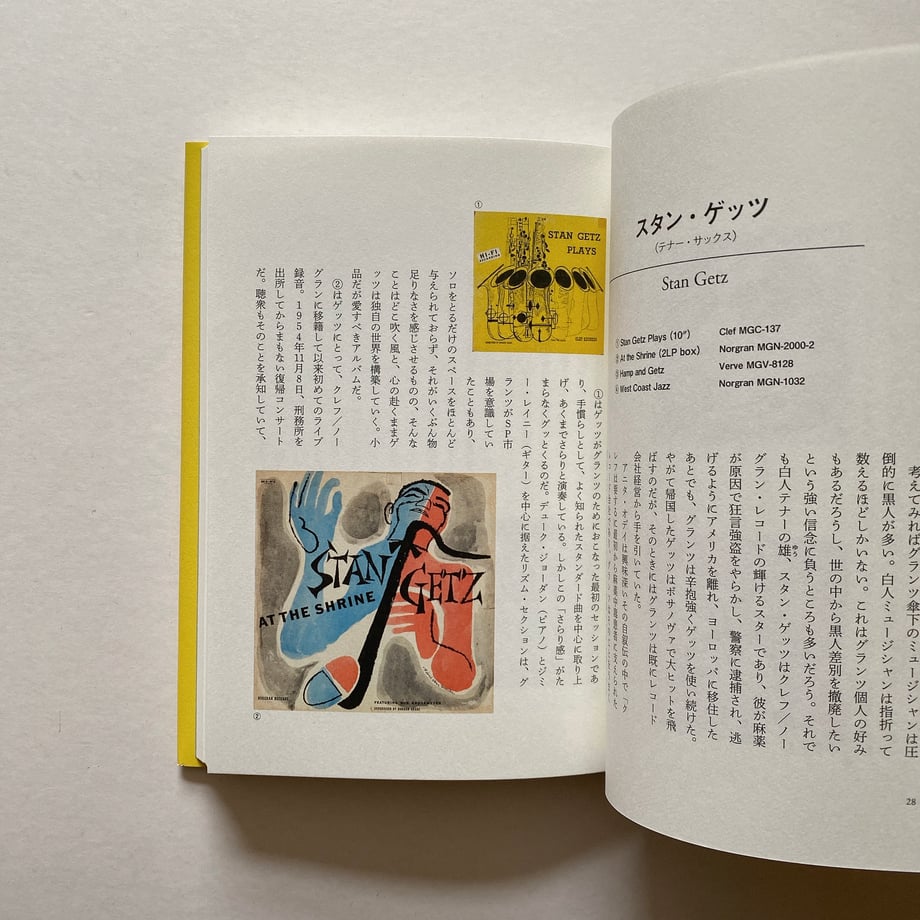 スタン・ゲッツ
（テナー・サックス）
Stan Getz
Stan Getz Plays (10") Clef MGC-137
At the Shrine (2LP box) Norgran MGN-2000-2
Hamp and Getz Verve MGV-8128
West Coast Jazz Norgran MGN-1032
考えてみればグランツ傘下のミュージシャンは圧
倒的に黒人が多い。白人ミュージシャンは指折って
数えるほどしかいない。これはグランツ個人の好み
もあるだろうし、世の中から黒人差別を撤廃したい
という強い信念に負うところも多いだろう。それで
も白人テナーの雄、スタン・ゲッツはクレフ／ノー
グラン・レコードの輝けるスターであり、彼が麻薬
が原因で狂言強盗をやらかし、警察に逮捕され、逃
げるようにアメリカを離れ、ヨーロッパに移住した
あとでも、グランツは辛抱強くゲッツを使い続けた。
やがて帰国したゲッツはボサノヴァで大ヒットを飛
ばすのだが、そのときにはグランツは既にレコード
会社経営から手を引いていた。
アニタ・オデイは興味深いその自叙伝の中で、「ク
28
①
STAN GETZ
PLAYS
HI-FI
①はゲッツがグランツのためにおこなった最初のセッションであ
り、手慣らしとして、よく知られたスタンダード曲を中心に取り上
げ、あくまでさらりと演奏している。しかしこの「さらり感」がた
まらなくグッとくるのだ。デューク・ジョーダン（ピアノ）とジミ
ー・レイニー（ギター）を中心に据えたリズム・セクションは、グ
ランツがＳＰ市
場を意識してい
たこともあり、
ソロをとるだけのスペースをほとんど
与えられておらず、それがいくぶん物
足りなさを感じさせるものの、そんな
ことはどこ吹く風と、心の赴くままゲ
ッツは独自の世界を構築していく。小
品だが愛すべきアルバムだ。
②はゲッツにとって、クレフ／ノー
グランに移籍して以来初めてのライブ
録音。１９５４年11月８日、刑務所を
出所してからまもない復帰コンサート
だ。聴衆もそのことを承知していて、
STAN GETZ
AT THE SHRINE
NORGRAN RECORDS
②